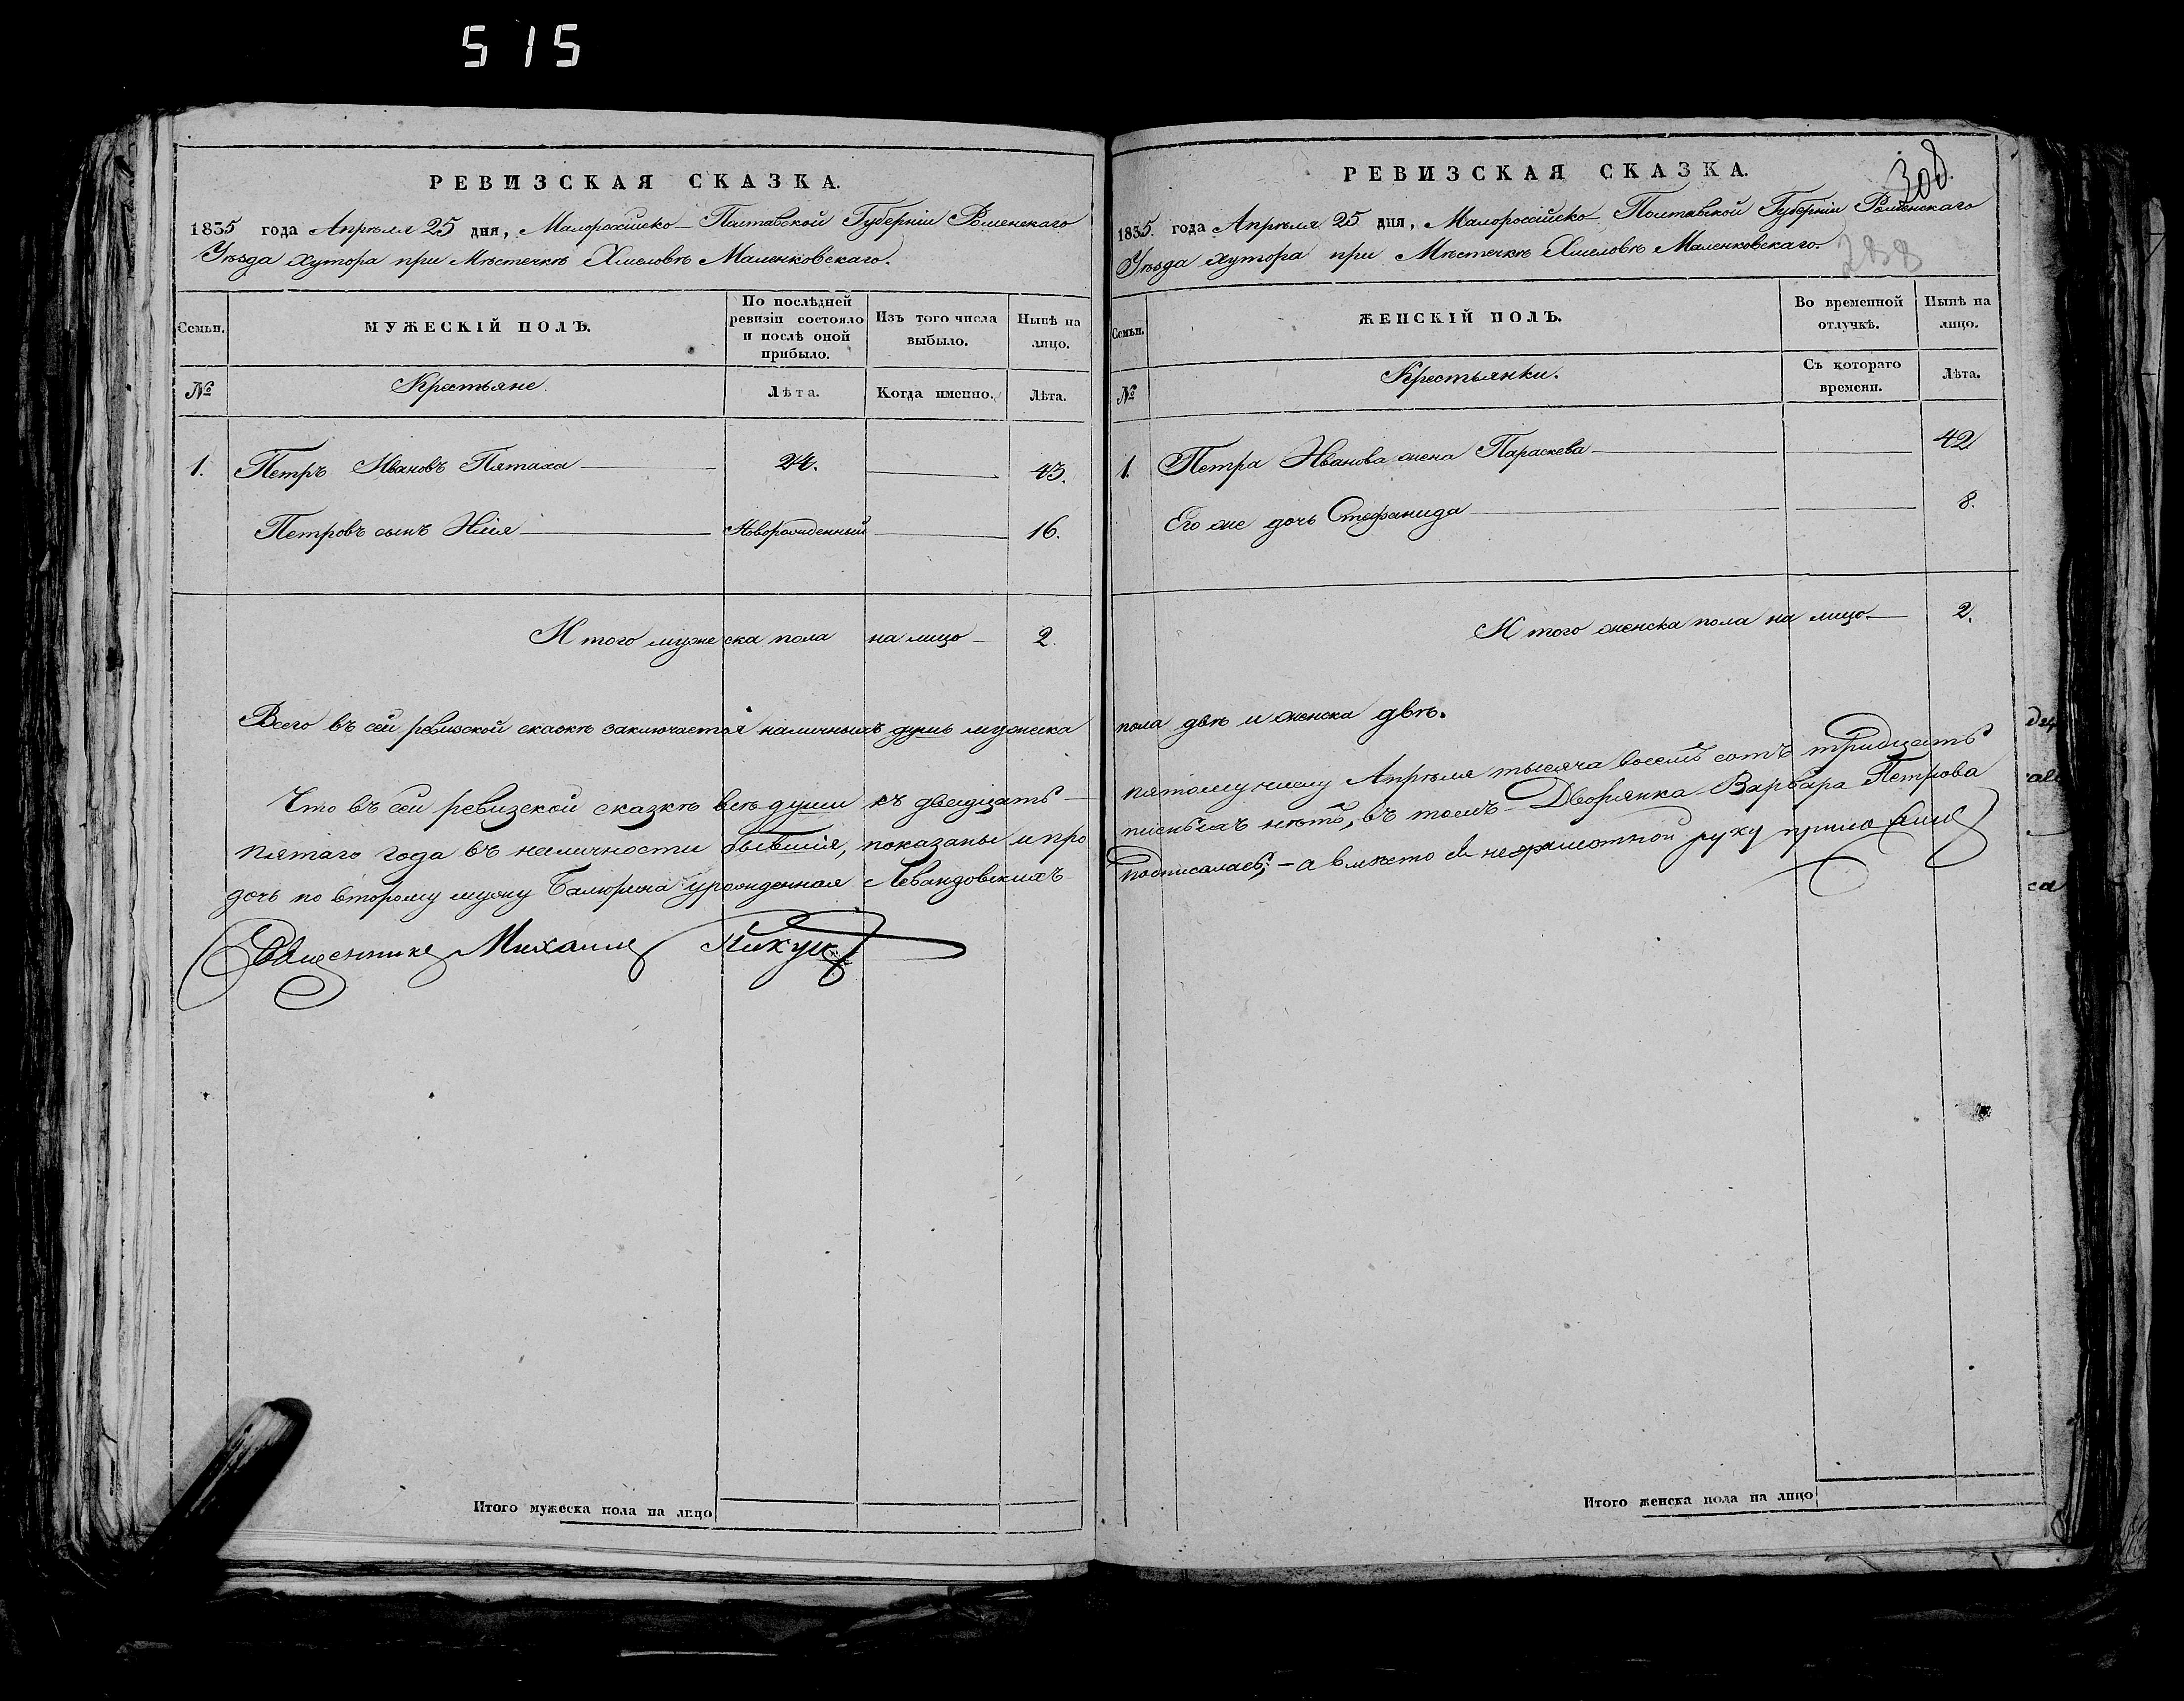 515
РЕВИЗСКАЯ СКАЗКА.
1835 года Апрѣля 25 дня, Малороссійско-Полтавской Губерніи Роменскаго
Уѣзда хутора при Мѣстечкѣ Хмеловѣ Маленковскаго.
Семьи.
МУЖЕСКІЙ ПОЛЪ.
По послѣдней ревизіи состояло и послѣ оной прибыло.
Изъ того числа выбыло.
Нынѣ на лицо.
№
Крестьяне.
Лѣта.
Когда именно.
Лѣта.
1. Петръ Ивановъ Пятаха 24. 43.
Петровъ сынъ Илія Новорожденный 16.
Итого мужеска пола на лицо 2.
Всего въ сей ревизской сказкѣ заключается наличныхъ душъ мужеска
Что въ сей ревизской сказкѣ всѣ души къ двадцать
пятаго года въ наличности бывшія, показаны и про
дочь по второму мужу урожденная Левандовскихъ
Священникъ Михаилъ Пикуц
Итого мужеска пола на лицо
308.
288
РЕВИЗСКАЯ СКАЗКА.
1835. года Апрѣля 25 дня, Малороссійско Полтавской Губерніи Роменскаго
Уѣзда хутора при Мѣстечкѣ Хмеловѣ Маленковскаго.
Семьи.
ЖЕНСКІЙ ПОЛЪ.
Во временной отлучкѣ.
Нынѣ на лицо.
№
Крестьянки.
Съ котораго времени.
Лѣта.
1. Петра Иванова жена Параскева 42
Его же дочь Стефанида 8.
Итого женска пола на лицо 2.
пола двѣ и женска двѣ.
пятому числу Апрѣля тысяча восемь сотъ тридцать
писныхъ нѣтъ, въ томъ Дворянка Варвара Петрова
подписалась; - а вмѣсто ей неграмотной руку приложилъ
Итого женска пола на лицо